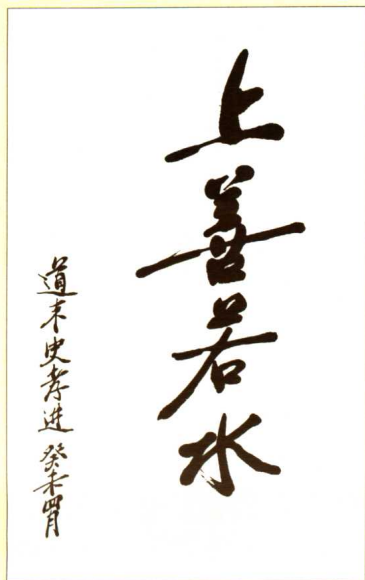 上善若水
道末史孝进 癸未四月